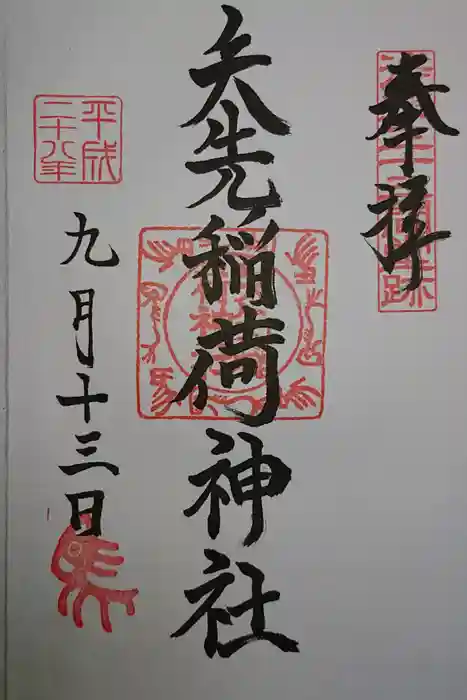 奉拝
矢先稲荷神社
平成
二十八年
九月十三日